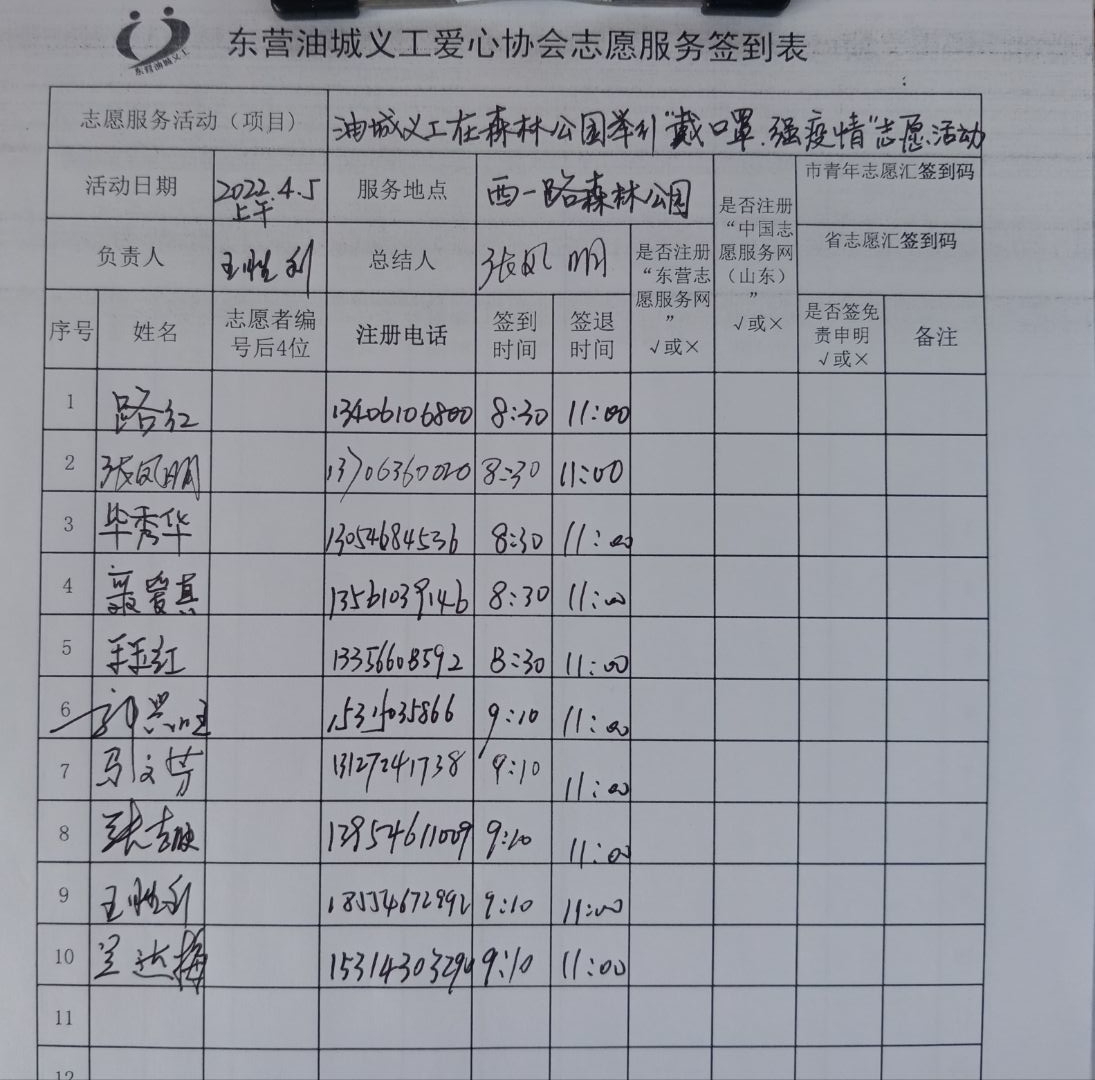 东营油城义工
东营油城义工爱心协会志愿服务签到表
志愿服务活动（项目） 油城义工在森林公园举行“戴口罩.强疫情”志愿活动
活动日期 2022.4.5 上午 服务地点 西一路森林公园 市青年志愿汇签到码
负责人 王胜利 总结人 张凤明 省志愿汇签到码
是否注册“东营志愿服务网” √或×
是否注册“中国志愿服务网（山东）” √或×
序号 姓名 志愿者编号后4位 注册电话 签到时间 签退时间 是否签免责申明 √或× 备注
1 路红 13406106800 8:30 11:00
2 张凤明 13706360020 8:30 11:00
3 毕秀华 13054684536 8:30 11:00
4 13561039146 8:30 11:00
5 13356608592 8:30 11:00
6 15315035866 9:10 11:00
7 马文芳 13127241738 9:10 11:00
8 13954611009 9:10 11:00
9 王胜利 18554672992 9:10 11:00
10 9:10 11:00
11
12